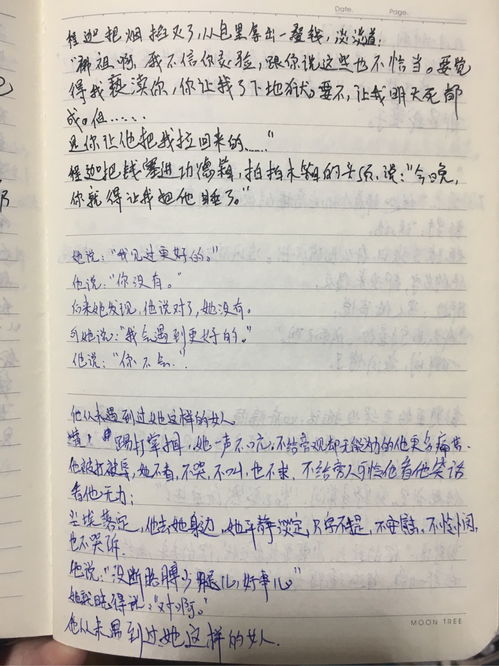 Date.    Page.
怪迦把烟掐灭了,从包里拿出一叠钱,淡淡道:
"佛祖啊,我不信你灵验,跟你说这些也不恰当。要觉
得我亵渎你,你让我下地狱。要不,让我明天死都
成。但……
是你让他把我拉回来的……"
怪迦把钱塞进功德箱,拍拍木箱的头顶,说:"今晚,
你就得让我把他睡了。"
她说:"我见过更好的。"
他说:"你没有。"
后来她发现,他说对了,她没有。
她说:"我会遇到更好的。"
他说:"你不会。"
他从未遇到过她这样的女人
踢打掌掴,她一声不吭,不给旁观却无能为力的他更多痛苦.
他被打被辱,她不看,不哭,不叫,也不求,不给旁人可怜他看他笑话
看他无力;
尘埃落定,他去她身边,她平静淡定,只字不提,不安慰,不怜悯,
也不哭诉.
他说:"没断胳膊少腿儿,好事儿。"
她说:"对啊。"
他从未遇到过她这样的女人.
MOON TREE